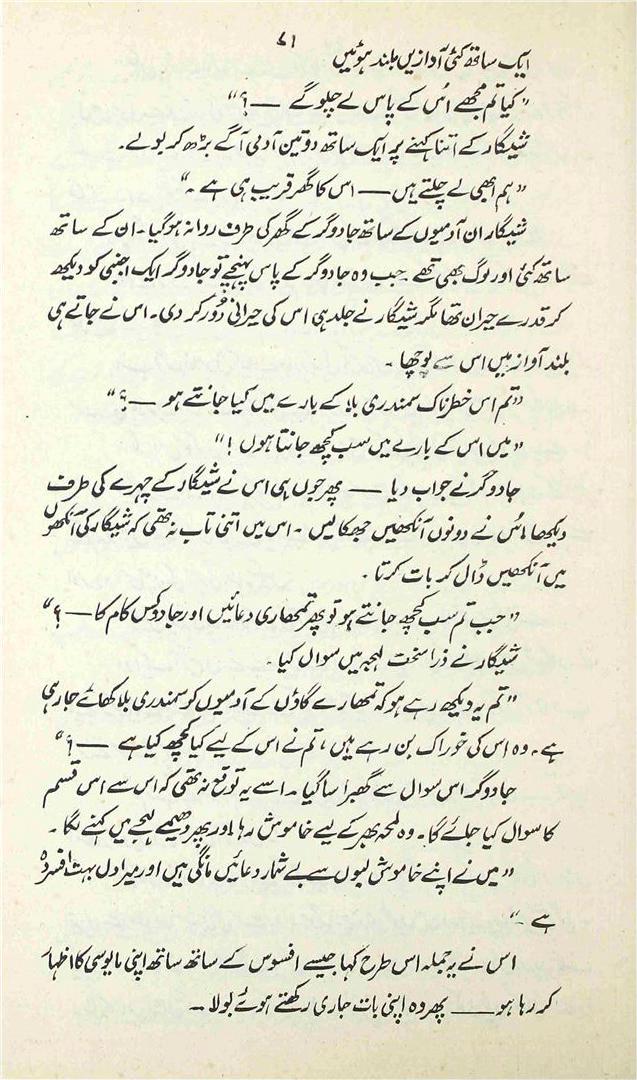 ۷۱
ایک ساتھ کئی آوازیں بلند ہوئیں
"کیا تم مجھے اُس کے پاس لے چلو گے ــــ ؟"
شیگار کے اتنا کہنے پر ایک ساتھ دو تین آدمی آگے بڑھ کر بولے۔
"ہم ابھی لے چلتے ہیں ــــ اس کا گھر قریب ہی ہے۔"
شیگار ان آدمیوں کے ساتھ جادوگر کے گھر کی طرف روانہ ہوگیا۔ ان کے ساتھ
ساتھ کئی اور لوگ بھی تھے۔ جب وہ جادوگر کے پاس پہنچے تو جادوگر ایک اجنبی کو دیکھ
کر قدرے حیران تھا مگر شیگار نے جلد ہی اس کی حیرانی دُور کر دی۔ اس نے جاتے ہی
بلند آواز میں اس سے پوچھا۔
"تم اس خطرناک سمندری بلا کے بارے میں کیا جانتے ہو ــــ ؟"
"میں اس کے بارے میں سب کچھ جانتا ہوں !"
جادوگر نے جواب دیا ــــ پھر جوں ہی اس نے شیگار کے چہرے کی طرف
دیکھا، اُس نے دونوں آنکھیں جھکا لیں۔ اس میں اتنی تاب نہ تھی کہ شیگار کی آنکھوں
میں آنکھیں ڈال کر بات کرتا۔
"جب تم سب کچھ جانتے ہو تو پھر تمھاری دعائیں اور جادو کس کام کا ــــ ؟"
شیگار نے ذرا سخت لہجہ میں سوال کیا۔
"تم یہ دیکھ رہے ہو کہ تمھارے گاؤں کے آدمیوں کو سمندری بلا کھائے جا رہی
ہے۔ وہ اس کی خوراک بن رہے ہیں، تم نے اس کے لیے کیا کچھ کیا ہے ــــ ؟"
جادوگر اس سوال سے گھبرا سا گیا۔ اسے یہ توقع نہ تھی کہ اس سے اس قسم
کا سوال کیا جائے گا۔ وہ لمحہ بھر کے لیے خاموش رہا اور پھر دھیمے لہجے میں کہنے لگا۔
"میں نے اپنے خاموش لبوں سے بے شمار دعائیں مانگی ہیں اور میرا دل بہت افسردہ
ہے۔"
اس نے یہ جملہ اس طرح کہا جیسے افسوس کے ساتھ ساتھ اپنی مایوسی کا اظہار
کر رہا ہو ــــ پھر وہ اپنی بات جاری رکھتے ہوئے بولا۔